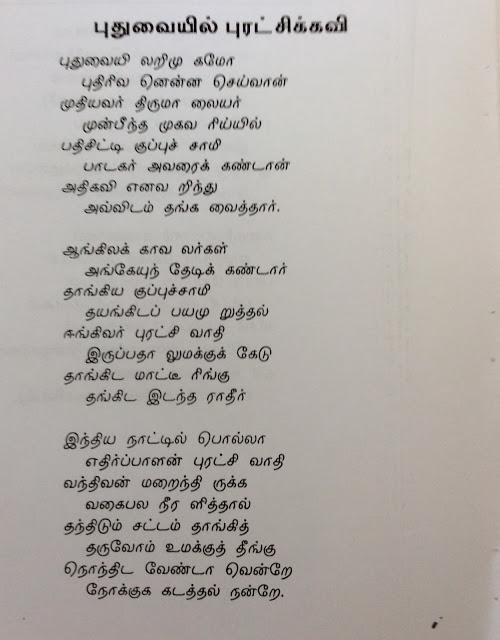 புதுவையில் புரட்சிக்கவி
புதுவையி லறிமு கமோ
புதிரிவ னென்ன செய்வான்
முதியவர் திருமா லையர்
முன்பீந்த முகவ ரிய்யில்
பதிசிட்டி குப்புச் சாமி
பாடகர் அவரைக் கண்டான்
அதிகவி எனவ றிந்து
அவ்விடம் தங்க வைத்தார்.
ஆங்கிலக் காவ லர்கள்
அங்கேயுந் தேடிக் கண்டார்
தாங்கிய குப்புச்சாமி
தயங்கிடப் பயமு றுத்தல்
ஈங்கிவர் புரட்சி வாதி
இருப்பதா லுமக்குக் கேடு
தாங்கிட மாட்டீ ரிங்கு
தங்கிட இடந்த ராதீர்
இந்திய நாட்டில் பொல்லா
எதிர்ப்பாளன் புரட்சி வாதி
வந்திவன் மறைந்தி ருக்க
வகைபல நீர ளித்தால்
தந்திடும் சட்டம் தாங்கித்
தருவோம் உமக்குத் தீங்கு
நொந்திட வேண்டா வென்றே
நோக்குக கடத்தல் நன்றே.